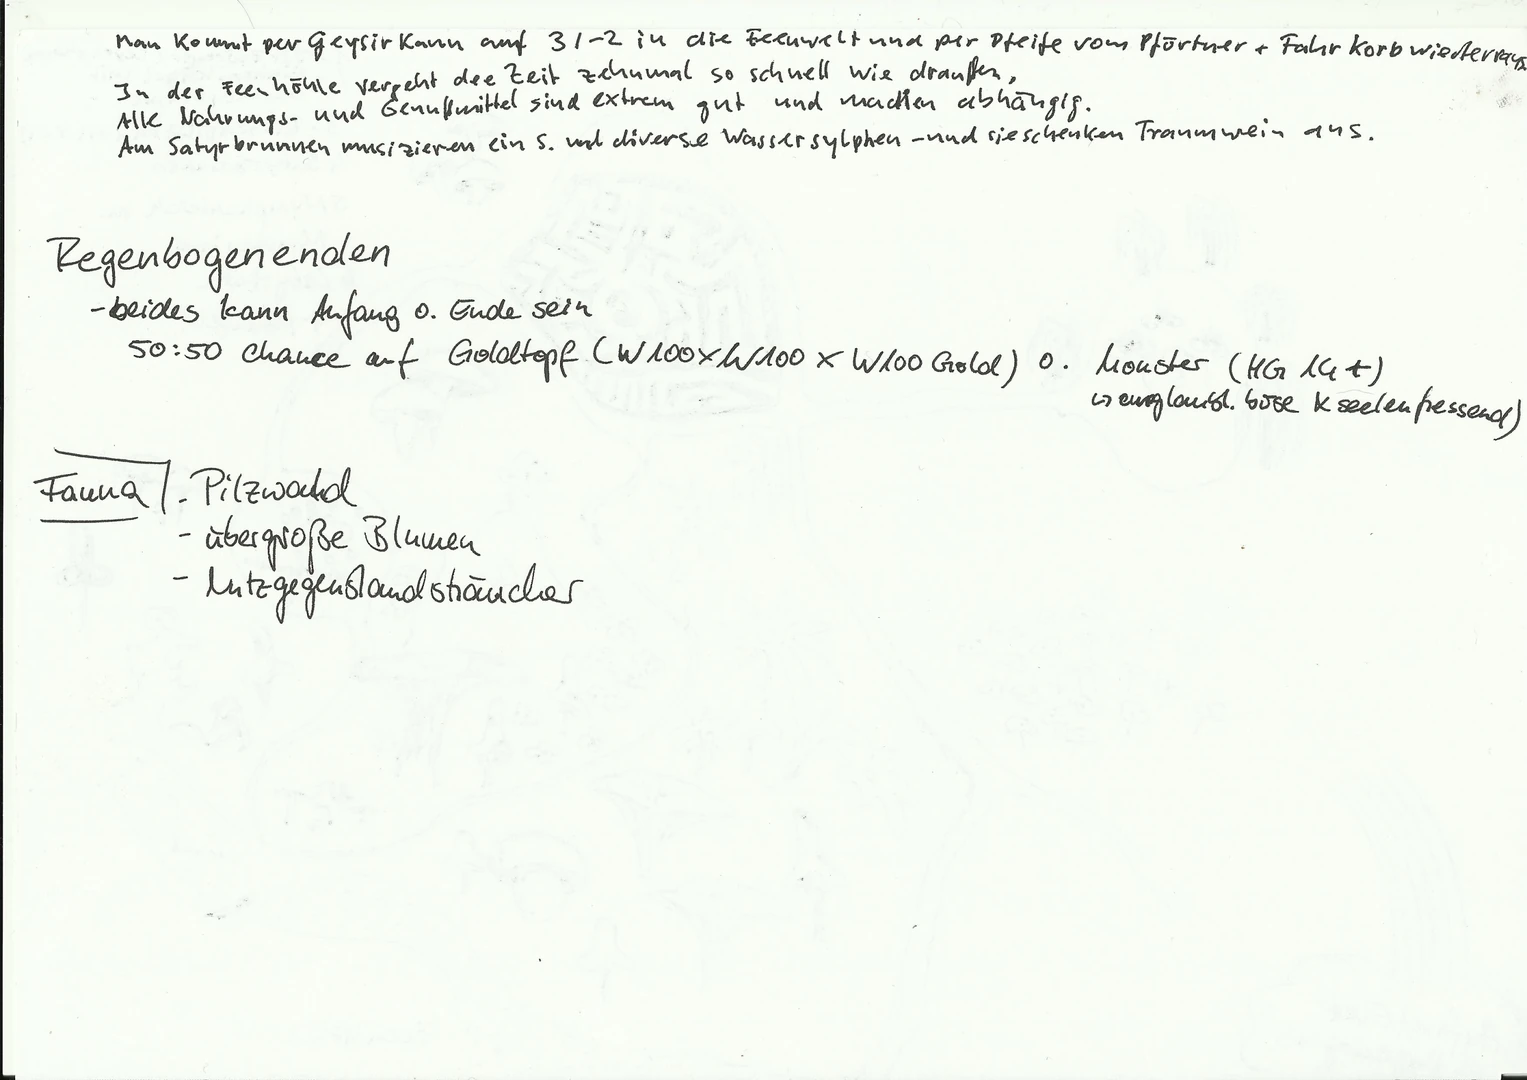 Man kommt per Geysir Kann auf 3 1-2 in die Feenwelt und per Pfeife vom Pförtner + Fahrkorb wieder raus
In der Feenhöhle vergeht die Zeit zehnmal so schnell wie draußen,
Alle Nahrungs- und Genußmittel sind extrem gut und machen abhängig.
Am Satyrbrunnen musizieren ein S. und diverse Wassersylphen - und sie schenken Traumwein aus.
Regenbogenenden
- beides kann Anfang o. Ende sein
50:50 Chance auf Goldtopf (W100 x W100 x W100 Gold) o. Monster (HG 14+)
böse seelenfressend)
Fauna - Pilzwald
- übergroße Blumen
- Nutzgegenstandsträucher